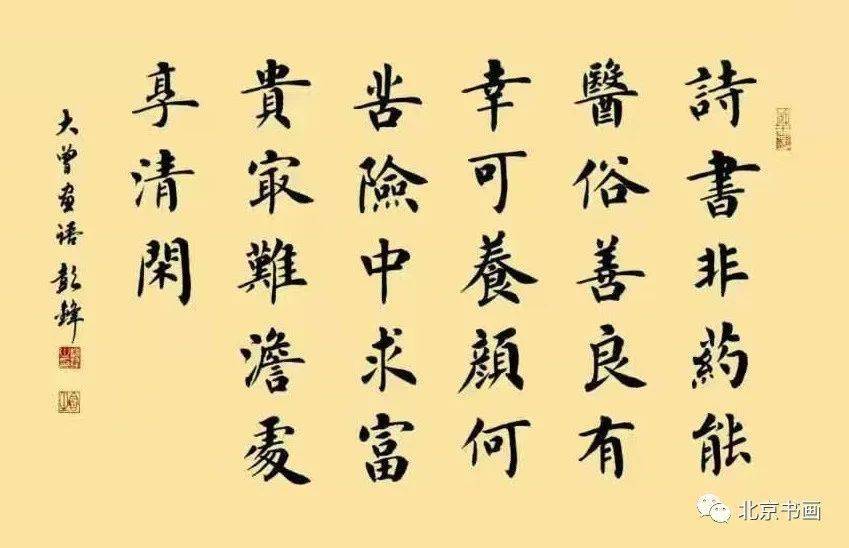 詩書非葯能
醫俗善良有
幸可養顔何
苦險中求富
貴㝡難澹處
享清閑
大曾畫語 彭鋒
北京书画